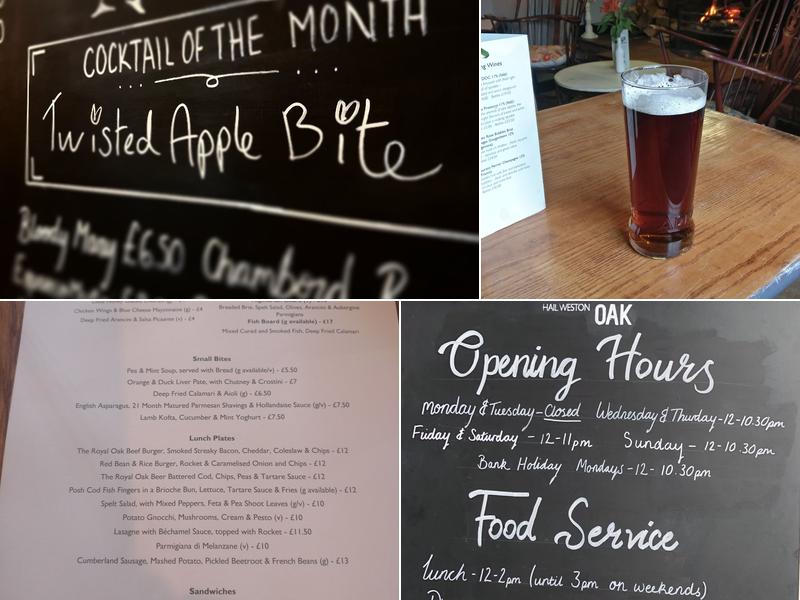 COCKTAIL OF THE MONTH
Twisted Apple Bite
Bloody Mary £6.50 Chambord R
Chicken Wings & Blue Cheese Mayonnaise (g) - £4
Deep Fried Arancini & Salsa Picaante (v) - £4
Breaded Brie, Spelt Salad, Olives, Arancini & Aubergine
Parmigiana
Fish Board (g available) - £17
Mixed Cured and Smoked Fish, Deep Fried Calamari
Small Bites
Pea & Mint Soup, served with Bread (g available/v) - £5.50
Orange & Duck Liver Pate, with Chutney & Crostini - £7
Deep Fried Calamari & Aioli (g) - £6.50
English Asparagus, 21 Month Matured Parmesan Shavings & Hollandaise Sauce (g/v) - £7.50
Lamb Kofta, Cucumber & Mint Yoghurt - £7.50
Lunch Plates
The Royal Oak Beef Burger, Smoked Streaky Bacon, Cheddar, Coleslaw & Chips - £12
Red Bean & Rice Burger, Rocket & Caramelised Onion and Chips - £12
The Royal Oak Beer Battered Cod, Chips, Peas & Tartare Sauce - £12
Posh Cod Fish Fingers in a Brioche Bun, Lettuce, Tartare Sauce & Fries (g available) - £12
Spelt Salad, with Mixed Peppers, Feta & Pea Shoot Leaves (g/v) - £10
Potato Gnocchi, Mushrooms, Cream & Pesto (v) - £10
Lasagne with Béchamel Sauce, topped with Rocket - £11.50
Parmigiana di Melanzane (v) - £10
Cumberland Sausage, Mashed Potato, Pickled Beetroot & French Beans (g) - £13
Sandwiches
HAIL WESTON OAK
Opening Hours
Monday & Tuesday - Closed Wednesday & Thursday - 12 - 10.30pm
Friday & Saturday - 12 - 11pm Sunday - 12 - 10.30pm
Bank Holiday Mondays - 12 - 10.30pm
Food Service
Lunch - 12 - 2pm (until 3pm on weekends)